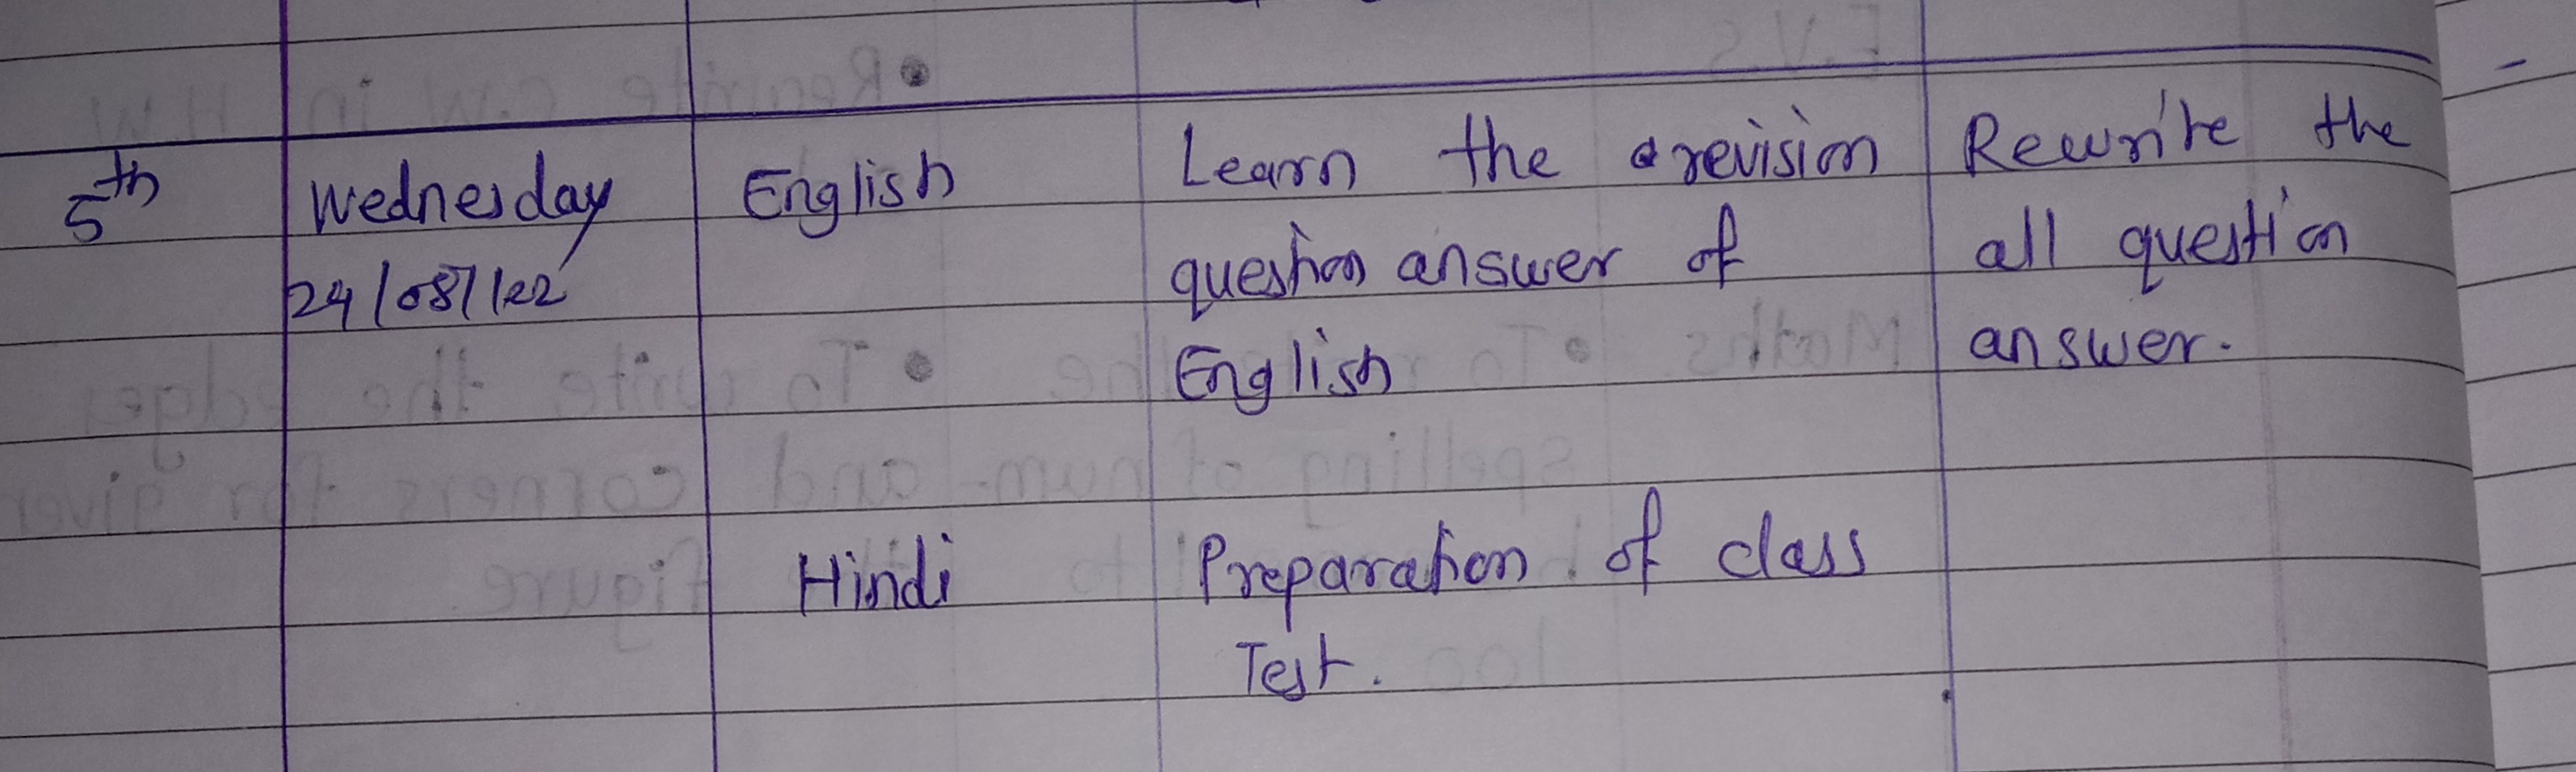 5th Wednesday English Learn the revision Rewrite the
24/08/22 question answer of all question
English answer.
Hindi Preparation of class
Test.